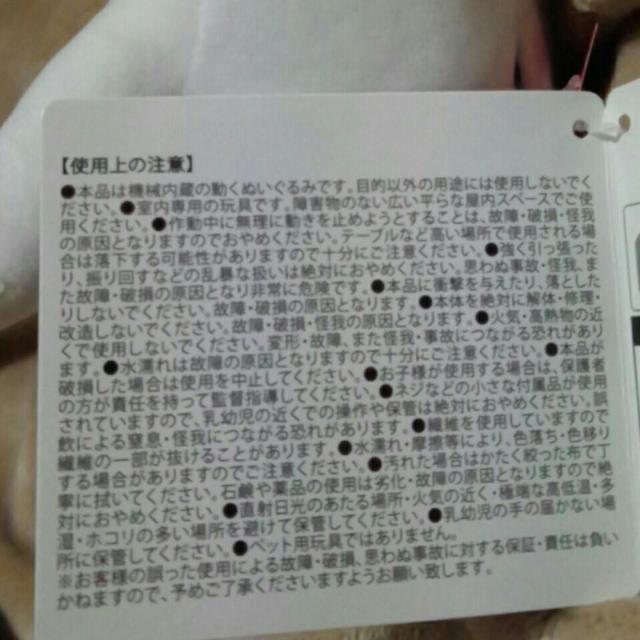 【使用上の注意】
●本品は機械内蔵の動くぬいぐるみです。目的以外の用途には使用しないでく
ださい。●室内専用の玩具です。障害物のない広い平らな屋内スペースでご使
用ください。●作動中に無理に動きを止めようとすることは、故障・破損・怪我
の原因となりますのでおやめください。テーブルなど、高い場所で使用される場
合は落下する可能性がありますので十分にご注意ください。●強く引っ張った
り、振り回すなどの乱暴な扱いは絶対におやめください。思わぬ事故・怪我、ま
た故障・破損の原因となり非常に危険です。●本品に衝撃を与えたり、落とした
りしないでください。故障・破損の原因となります。●本体を絶対に解体・修理・
改造しないでください。故障・破損・怪我の原因となります。●火気・暖熱物の近
くで使用しないでください。変形・故障、また怪我・事故につながる恐れがありま
す。●水濡れは故障の原因となりますので十分にご注意ください。●本品が
破損した場合は使用を中止してください。●お子様が使用する場合は、保護者
の方が責任を持って監督指導してください。●ボタンなどの小さな付属品が使用
されています。乳幼児の近くでの操作や保管は絶対におやめください。誤
飲による窒息・怪我につながる恐れがあります。●繊維を使用していますので、
繊維の一部が抜けることがあります。●水濡れ・摩擦等により、色落ち・色移り
する場合がありますのでご注意ください。●汚れた場合はかたく絞った布で丁
寧に拭いてください。石鹸や薬品の使用は劣化・故障の原因となりますので絶
対におやめください。●直射日光のあたる場所・火気の近く・極端な高低温・多
湿・ホコリの多い場所を避けて保管してください。●乳幼児の手の届かない場
所に保管してください。●ペット用玩具ではありません。
※お客様の誤った使用による故障・破損、思わぬ事故に対する保証・責任は負い
かねますので、予めご了承くださいますようお願い致します。